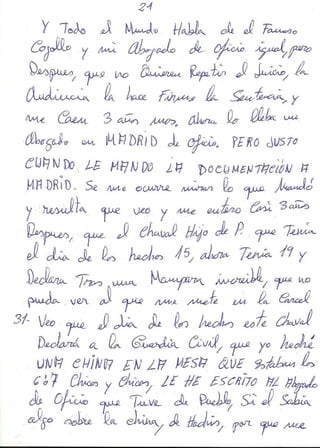 21
Y Todo el Mundo Habla de el Famoso
Cogollo y mi Abogado de oficio igual, pero
Despues, que no Quieren Repetir el Juicio, la
Audiencia la hace Firme la Sentencia, y
me Caen 3 años mas, ahora lo lleba un
Abogado en MADRID de oficio. PERO JUSTO
CUANDO LE MANDO LA DOCUMENTACIÓN A
MADRID. Se me ocurre mirar lo que Mandó
y resulta que veo y me entero Casi 3 años
Despues, que el Chaval Hijo de P. que Tenia
el dia de los hechos 15, ahora Tenia 19 y
Declara Tras una Mampara increible, que no
pueda ver al que me mete en la Carcel
31- Veo que el dia de los hechos este Chaval
Declará a la Guardia Civil, que yo heché
UNA CHINA EN LA MESA QUE Estaban los
6 ó 7 Chicos y Chicas, LE HE ESCRITO AL Abogado
de Oficio que Tuve de Pueblo, Si el Sabia
algo sobre la china, de Hachis, por que me